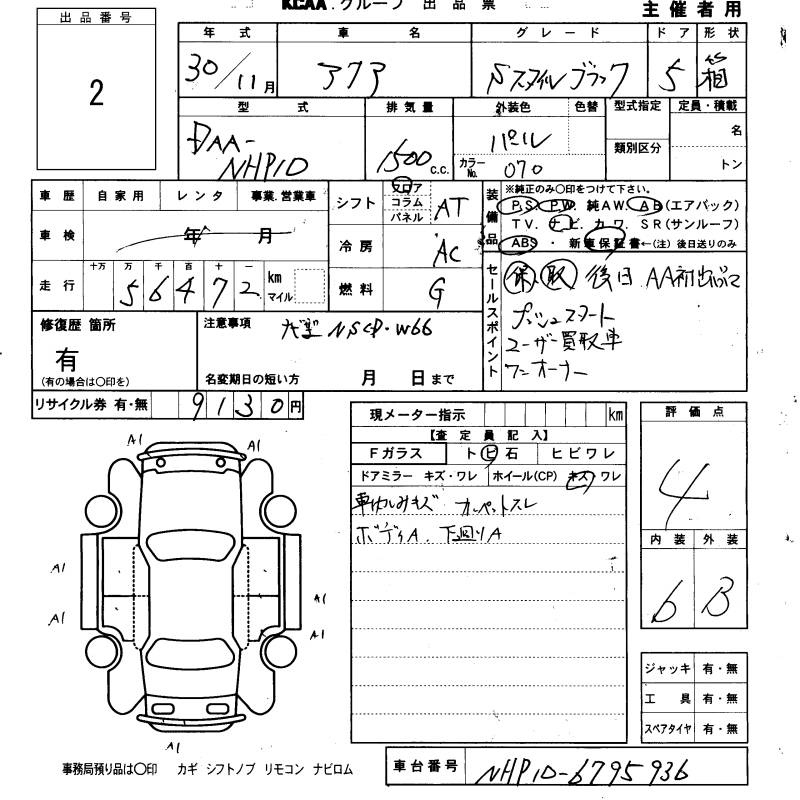 KCAA.グループ 出品票
主催者用
出品番号
2
年式 車名 グレード ドア 形状
30/11月 アクア Sスタイルブラック 5 箱
型式 排気量 外装色 色替 型式指定 定員・積載
DAA-NHP10 1500c.c. パール
カラーNo. 070
類別区分
名
トン
車歴 自家用 レンタ 事業.営業車
車検 年 月
走行 十万 万 千 百 十 一
56472 km マイル
シフト フロア コラム パネル AT
冷房 AC
燃料 G
装備品
※純正のみ〇印をつけて下さい。
P.S P.W. 純AW. AB(エアバック)
TV. ナビ. カワ. SR(サンルーフ)
ABS ・ 新車保証書←(注) 後日送りのみ
セールスポイント
保 取 後日 AA初出品
プッシュスタート
ユーザー買取車
ワンオーナー
修復歴 箇所
有
(有の場合は〇印を)
注意事項
NSCP・W66
名変期日の短い方 月 日まで
リサイクル券 有・無 9130円
現メーター指示 km
【査定員記入】
Fガラス トビ石 ヒビワレ
ドアミラー キズ・ワレ ホイール(CP) キズ ワレ
車内しみキズ カーペットスレ
ボディA. 下廻りA
評価点
4
内装 外装
b B
A1 A1
A1
A1
A1
A1
A1
ジャッキ 有・無
工具 有・無
スペアタイヤ 有・無
事務局預り品は〇印 カギ シフトノブ リモコン ナビロム
車台番号 NHP10-6795936